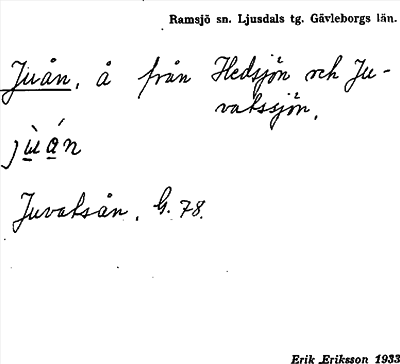 Ramsjö sn. Ljusdals tg. Gävleborgs län.
Juån, å från Hedsjön och Ju-
vatssjön.
jùán
Juvatsån, G. 78.
Erik Eriksson 1933